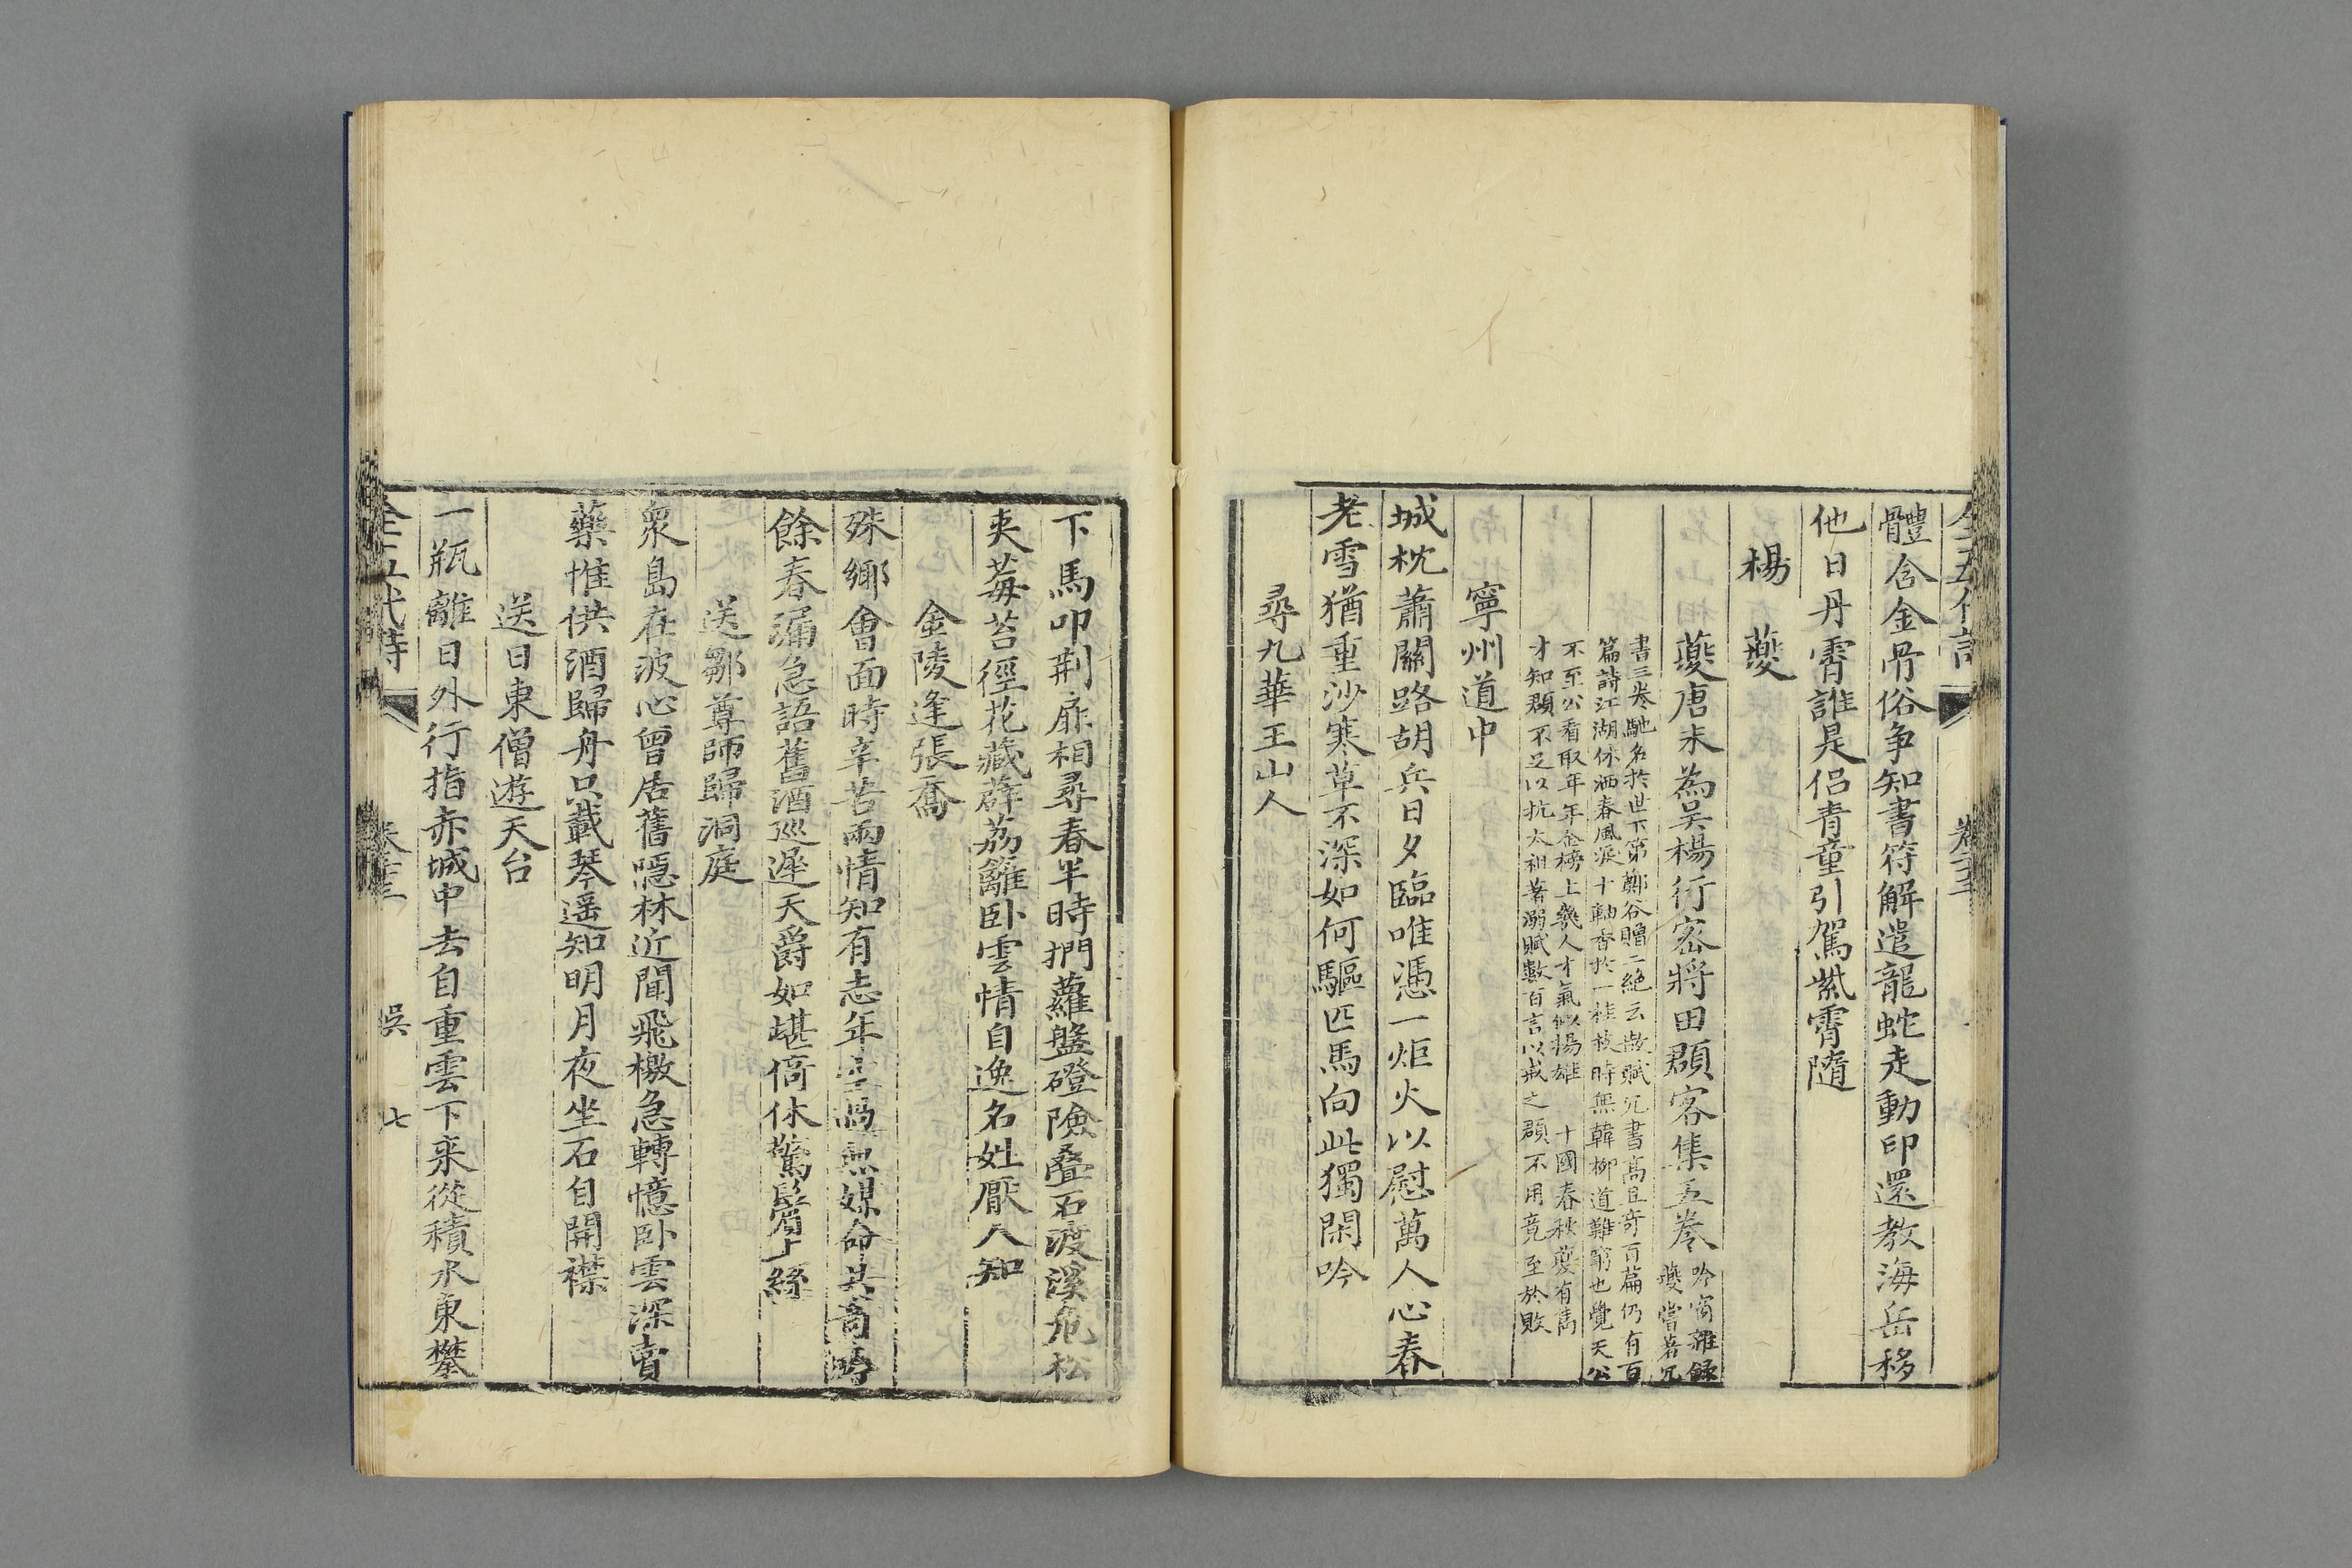 體含金骨俗争知書符解遣龍蛇走動印還教海岳移
他日丹霄誰是侣青童引駕紫霄隨
楊夔
夔唐末為吴楊行密將田頵客集五卷
吟窗雜録
夔嘗著冗
書三卷馳名於世下第鄭谷贈二絶云散賦冗書高且竒百篇仍有百
篇詩江湖休洒春風淚十軸香於一桂枝時無韓柳道難窮也覺天公
不至公看取年年金榜上幾人才氣似揚雄　十國春秋夔有雋
才知頵不足以抗太祖著溺賦數百言以戒之頵不用竟至於敗
寧州道中
城枕蕭關路胡兵日夕臨唯憑一炬火以慰萬人心春
老雪猶重沙寒草不深如何驅匹馬向此獨閑吟
尋九華王山人
下馬叩荆扉相尋春半時捫蘿盤磴險叠石渡溪危松
夾莓苔徑花藏薜荔籬卧雲情自逸名姓厭人知
金陵逢張喬
殊鄉會面時辛苦兩情知有志年空過無媒命共竒吟
餘春漏急語舊酒巡遲天爵如堪倚休驚鬢上絲
送鄒尊師歸洞庭
衆島在波心曾居舊隱林近聞飛檄急轉憶卧雲深賣
藥惟供酒歸舟只載琴遥知明月夜坐石自開襟
送日東僧遊天台
一瓶離日外行指赤城中去自重雲下来從積水東攀
全五代詩　吴　七